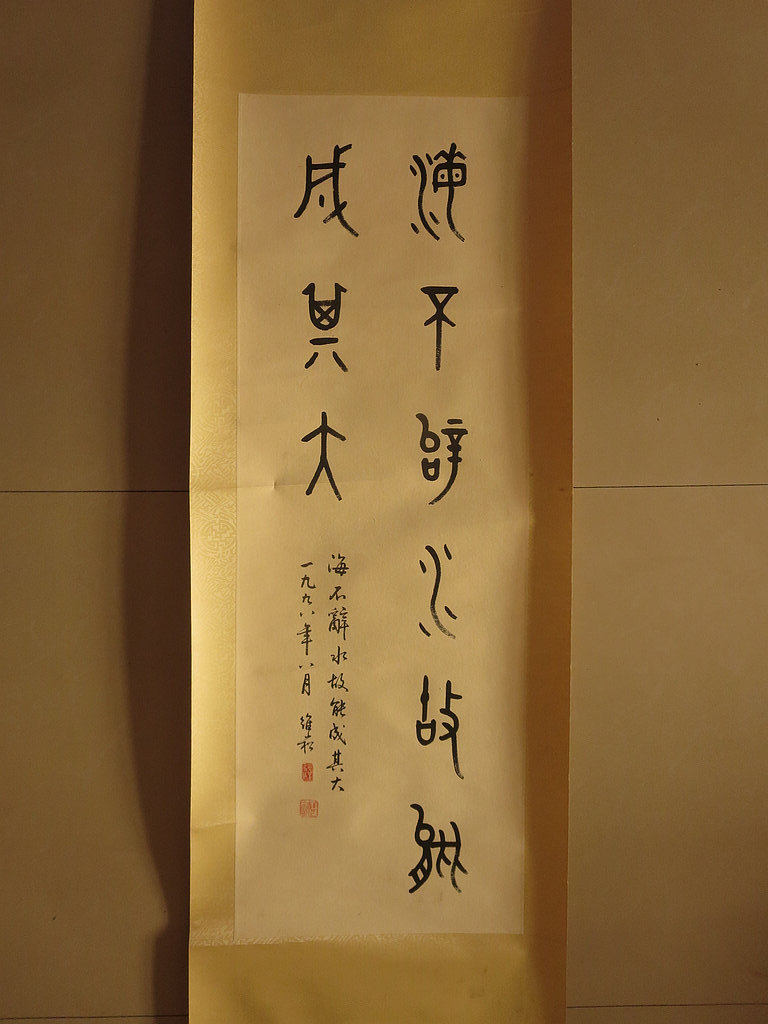 海不辭水故能
成其大
海不辭水故能成其大
一九九八年八月 維松